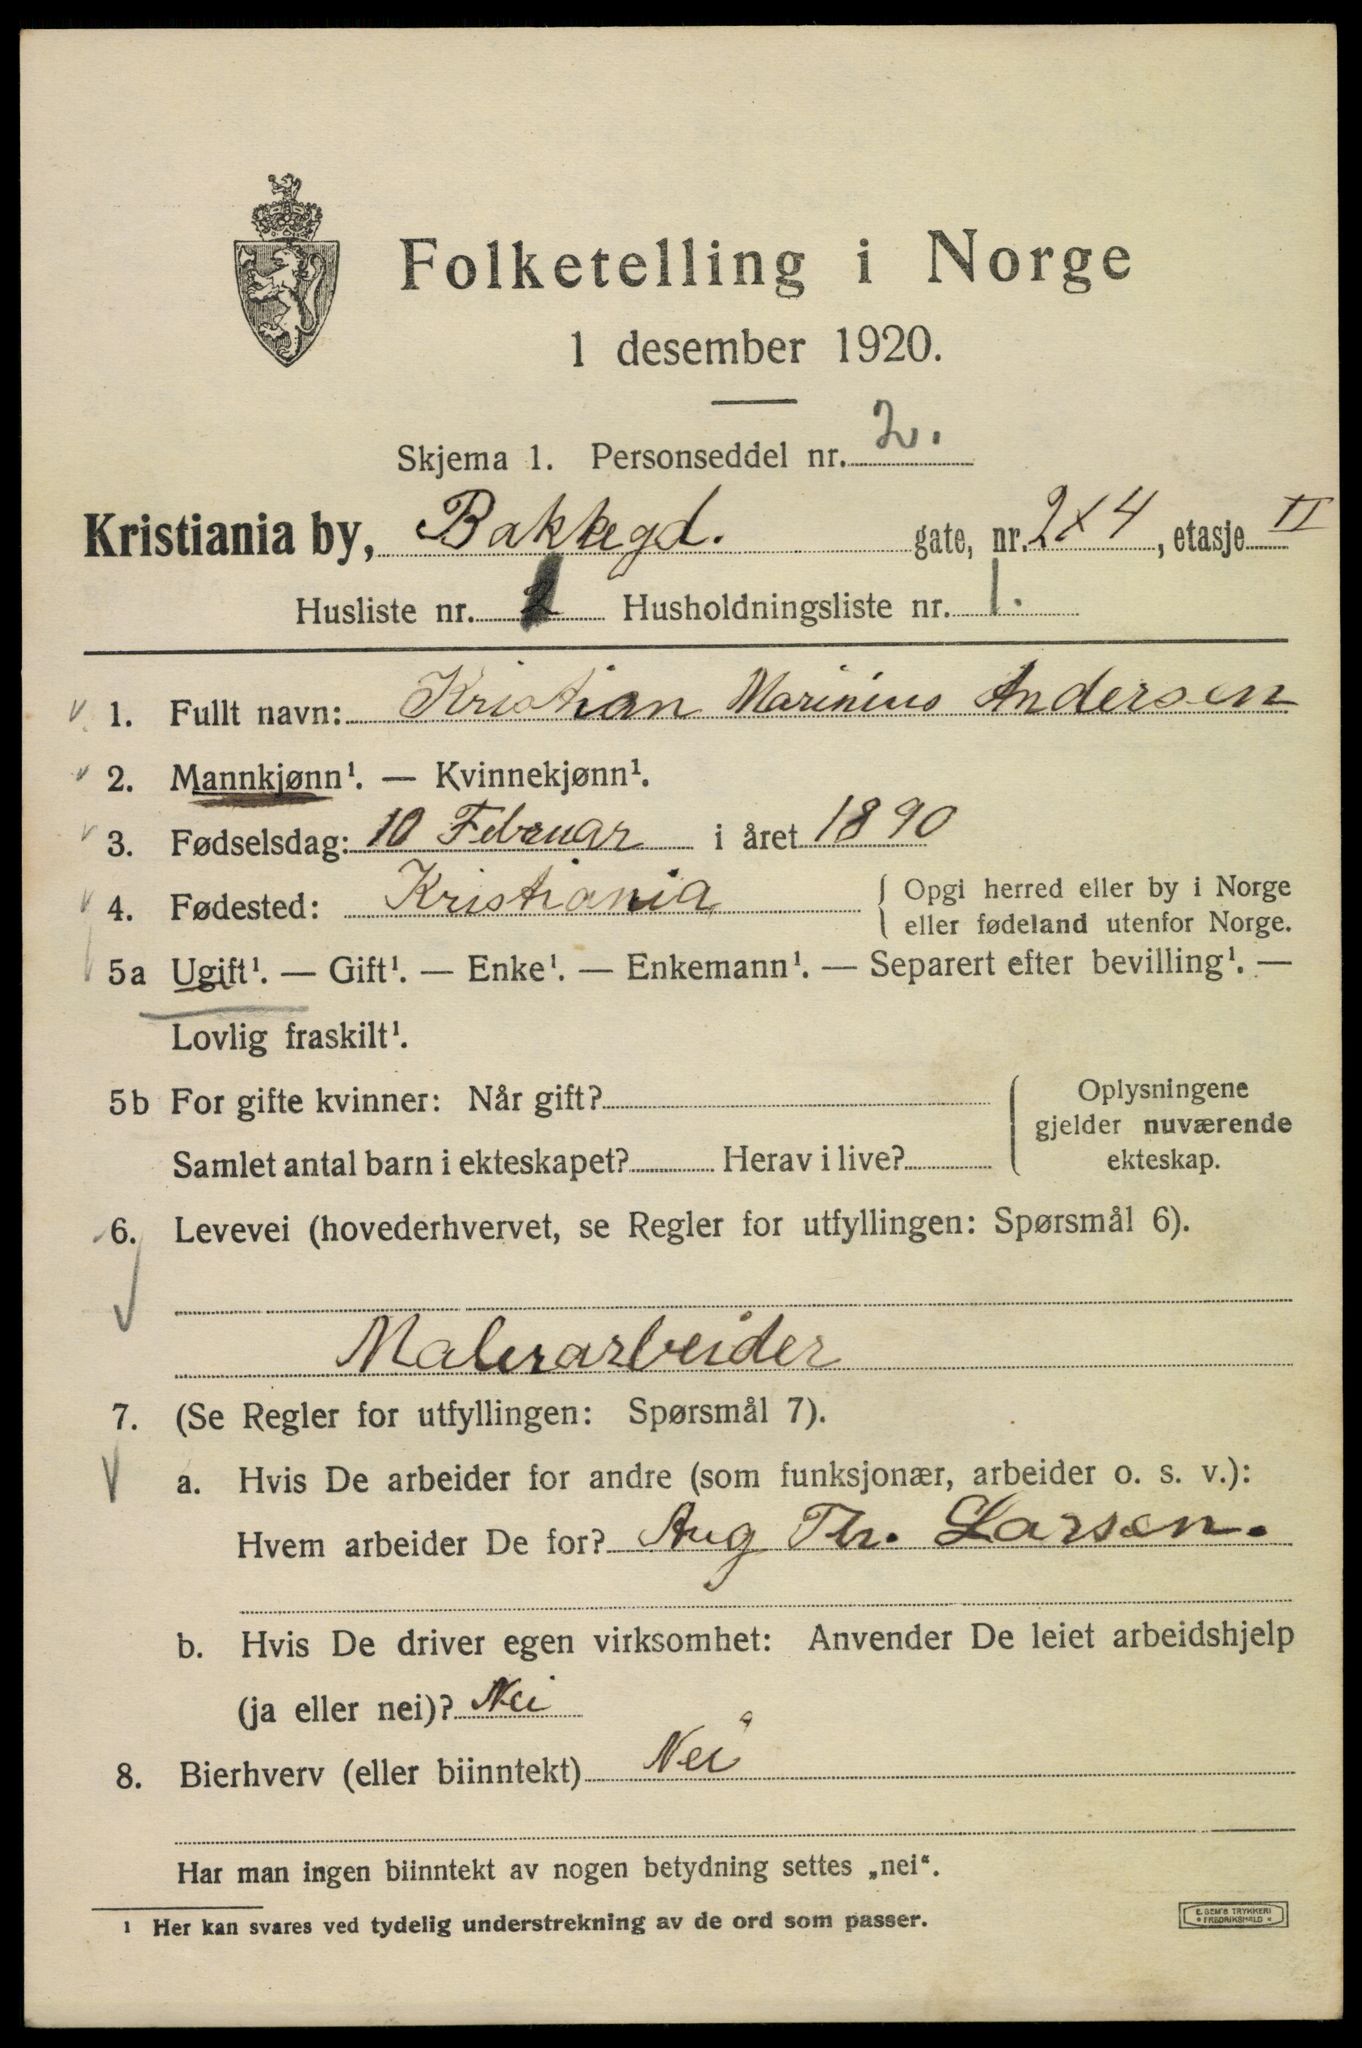 Folketelling i Norge
1 desember 1920.
Skjema 1. Personseddel nr. 2.
Kristiania by, Bakkegd. gate, nr. 2 x 4, etasje II
Husliste nr. Husholdningsliste nr. 1.
1. Fullt navn: Kristian Marinius Andersen
2. Mannkjønn¹. — Kvinnekjønn¹.
3. Fødselsdag: 10 Februar i året 1890
4. Fødested: Kristiania { Opgi herred eller by i Norge
eller fødeland utenfor Norge.
5a Ugift¹. — Gift¹. — Enke¹. — Enkemann¹. — Separert efter bevilling¹. —
Lovlig fraskilt¹.
5b For gifte kvinner: Når gift?
Samlet antal barn i ekteskapet? Herav i live?
Oplysningene
gjelder nuværende
ekteskap.
6. Levevei (hovederhvervet, se Regler for utfyllingen: Spørsmål 6).
Malerarbeider
7. (Se Regler for utfyllingen: Spørsmål 7).
a. Hvis De arbeider for andre (som funksjonær, arbeider o. s. v.):
Hvem arbeider De for? Aug Th. Larsen.
b. Hvis De driver egen virksomhet: Anvender De leiet arbeidshjelp
(ja eller nei)? Nei
8. Bierhverv (eller biinntekt) Nei
Har man ingen biinntekt av nogen betydning settes „nei“.
¹ Her kan svares ved tydelig understrekning av de ord som passer.
E. SEM'S TRYKKERI
* FREDRIKSHALD *